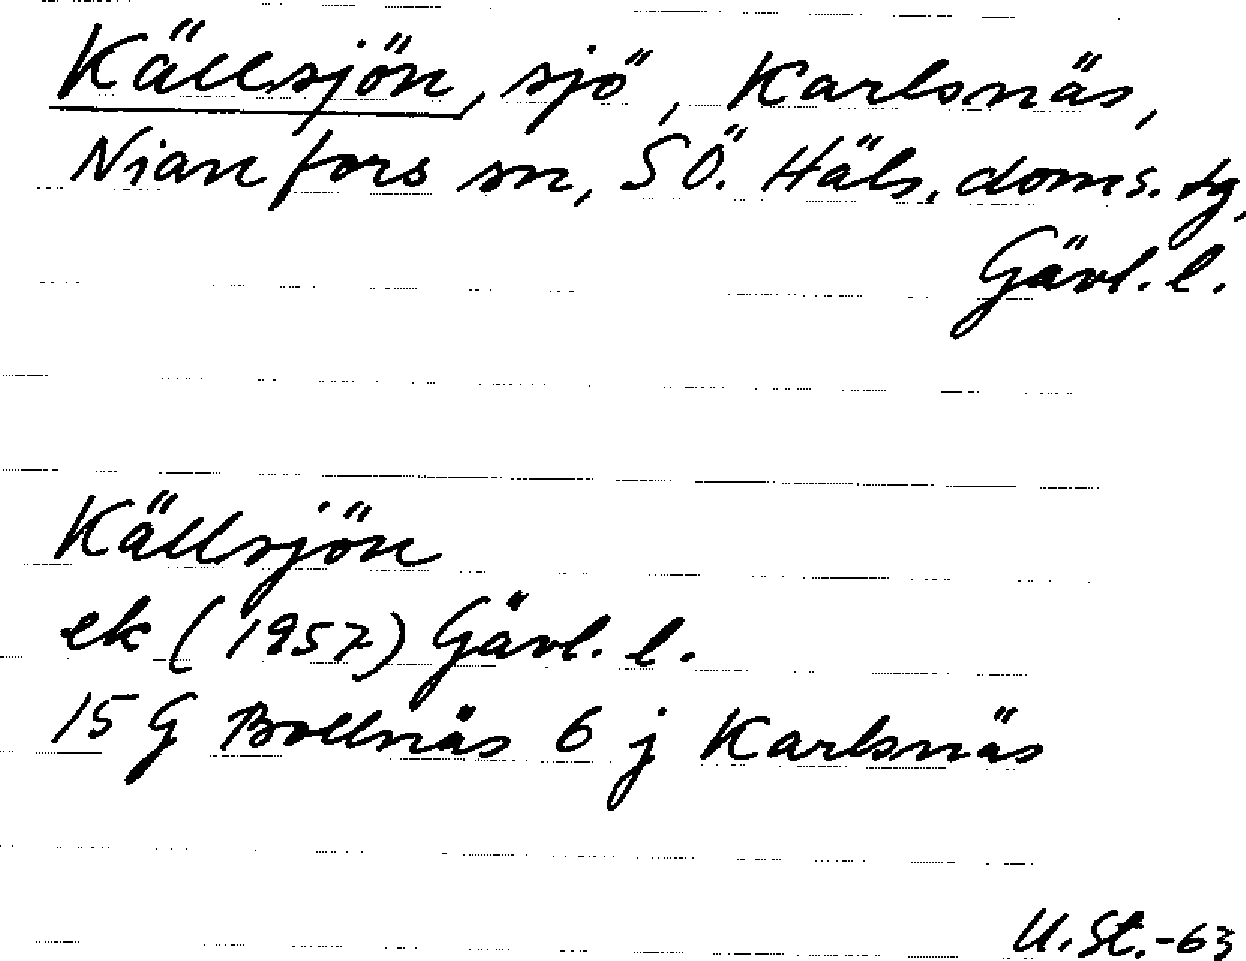 Källsjön, sjö, Karlsnäs,
Nianfors sn, SÖ. Häls. doms. tg,
Gävl. l.
Källsjön
ek (1957) Gävl. l.
15 G Bollnäs 6 j Karlsnäs
U. St. -63